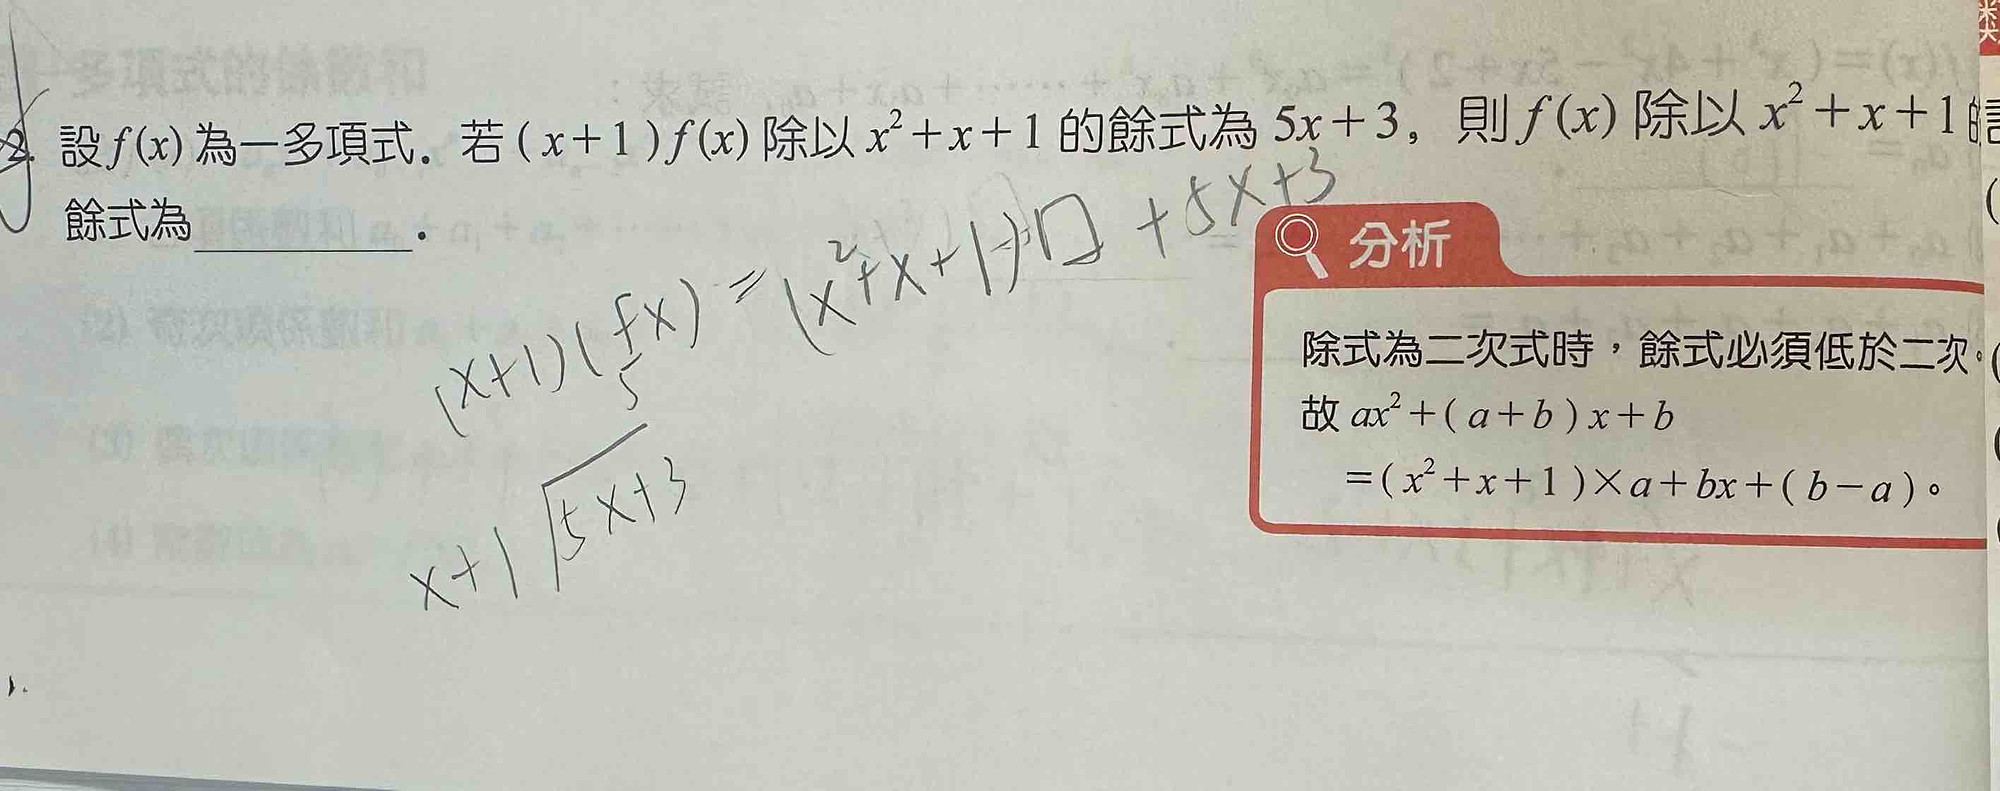 設 f(x) 為一多項式．若 (x+1)f(x) 除以 x²+x+1 的餘式為 5x+3，則 f(x) 除以 x²+x+1 的
餘式為＿＿＿＿．
(x+1)(fx) = (x²+x+1)□ + 5x+3
5
x+1 5x+3
分析
除式為二次式時，餘式必須低於二次。
故 ax²+(a+b)x+b
=(x²+x+1)×a+bx+(b−a)。